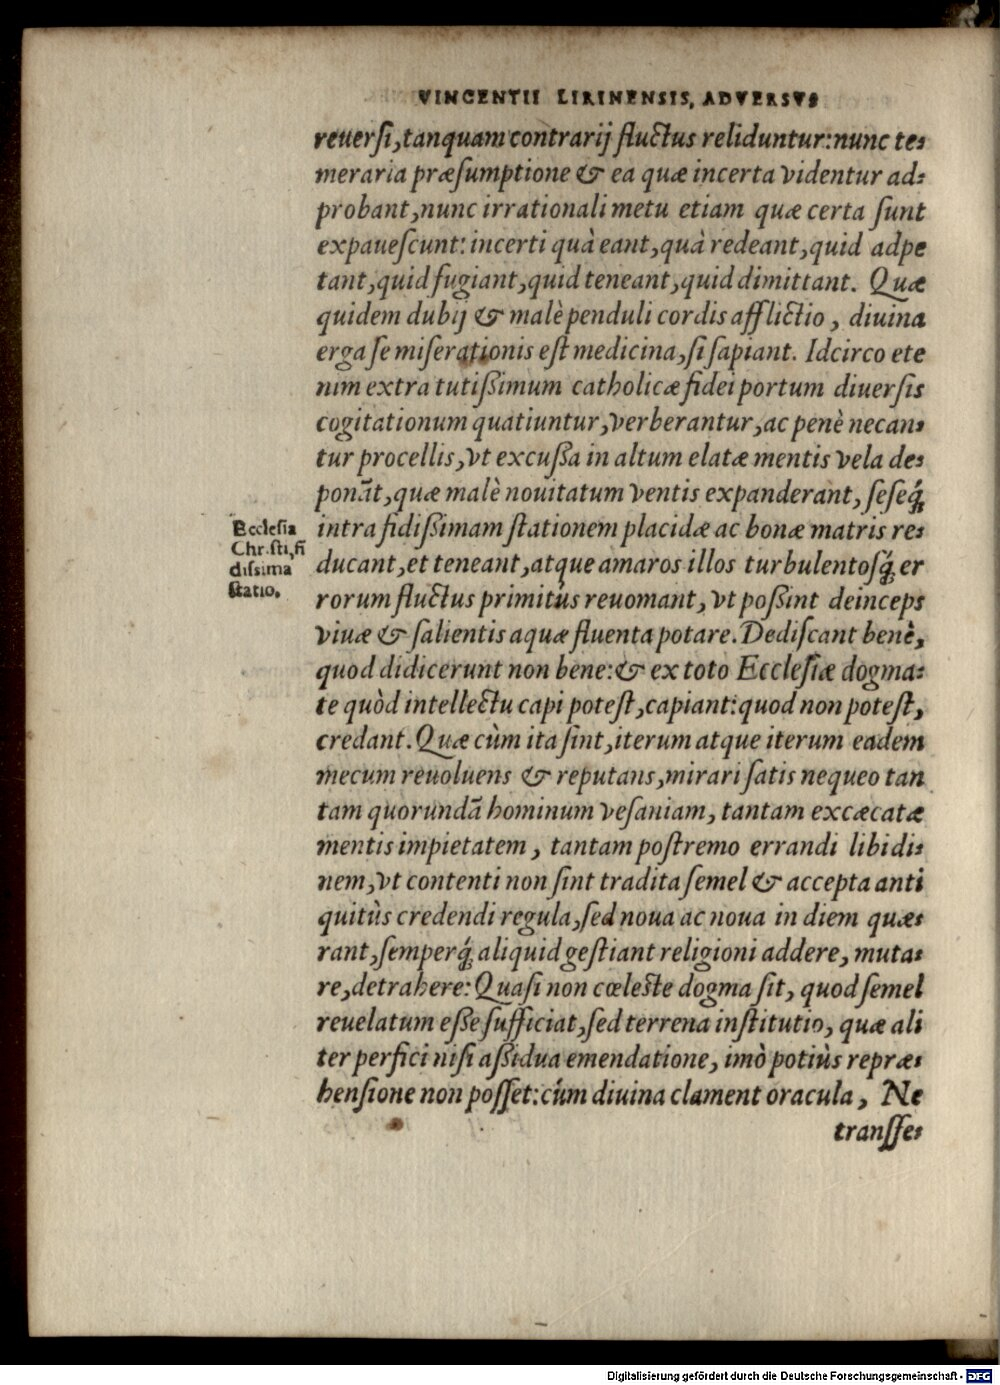 VINCENTII LIRINENSIS, ADVERSVS
reuersi, tanquam contrarij fluctus reliduntur: nunc te-
meraria præsumptione & ea quæ incerta videntur ad-
probant, nunc irrationali metu etiam quæ certa sunt
expauescunt: incerti quà eant, quà redeant, quid adpe
tant, quid fugiant, quid teneant, quid dimittant. Quæ
quidem dubij & malè penduli cordis afflictio, diuina
erga se miserationis est medicina, si sapiant. Idcirco ete
nim extra tutißimum catholicæ fidei portum diuersis
cogitationum quatiuntur, verberantur, ac penè necan-
tur procellis, vt excußa in altum elatæ mentis vela de-
ponãt, quæ malè nouitatum ventis expanderant, seseq́;
intra fidißimam stationem placidæ ac bonæ matris re-
ducant, et teneant, atque amaros illos turbulentosq́; er
rorum fluctus primitùs reuomant, vt poßint deinceps
viuæ & salientis aquæ fluenta potare. Dediscant benè,
quod didicerunt non bene: & ex toto Ecclesiæ dogma-
te quòd intellectu capi potest, capiant: quod non potest,
credant. Quæ cùm ita sint, iterum atque iterum eadem
mecum reuoluens & reputans, mirari satis nequeo tan
tam quorundã hominum vesaniam, tantam excæcatæ
mentis impietatem, tantam postremo errandi libidi-
nem, vt contenti non sint tradita semel & accepta anti
quitùs credendi regula, sed noua ac noua in diem quæ-
rant, semperq́; aliquid gestiant religioni addere, muta-
re, detrahere: Quasi non cœleste dogma sit, quod semel
reuelatum eße sufficiat, sed terrena institutio, quæ ali
ter perfici nisi aßidua emendatione, imò potiùs repræ-
hensione non posset: cúm diuina clament oracula, Ne
transfe-
Ecclesia
Christi, fi
dissima
statio.
Digitalisierung gefördert durch die Deutsche Forschungsgemeinschaft - DFG